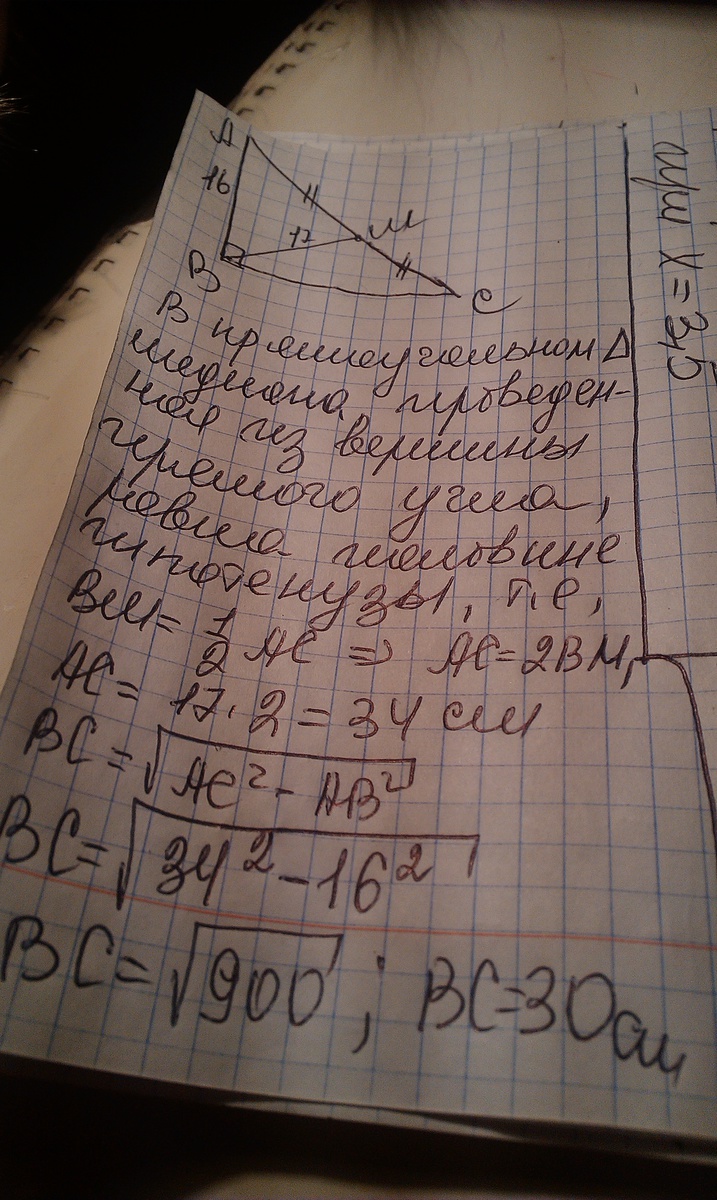 A
16
17
M
B
C
В прямоугольном Δ
медиана проведен-
ная из вершины
прямого угла,
равна половине
гипотенузы, т.е,
BM = 1/2 AC ⇒ AC = 2BM,
AC = 17 · 2 = 34 см
BC = √AC² - AB²
BC = √34² - 16²
BC = √900 ; BC = 30 см
при x = 3,5